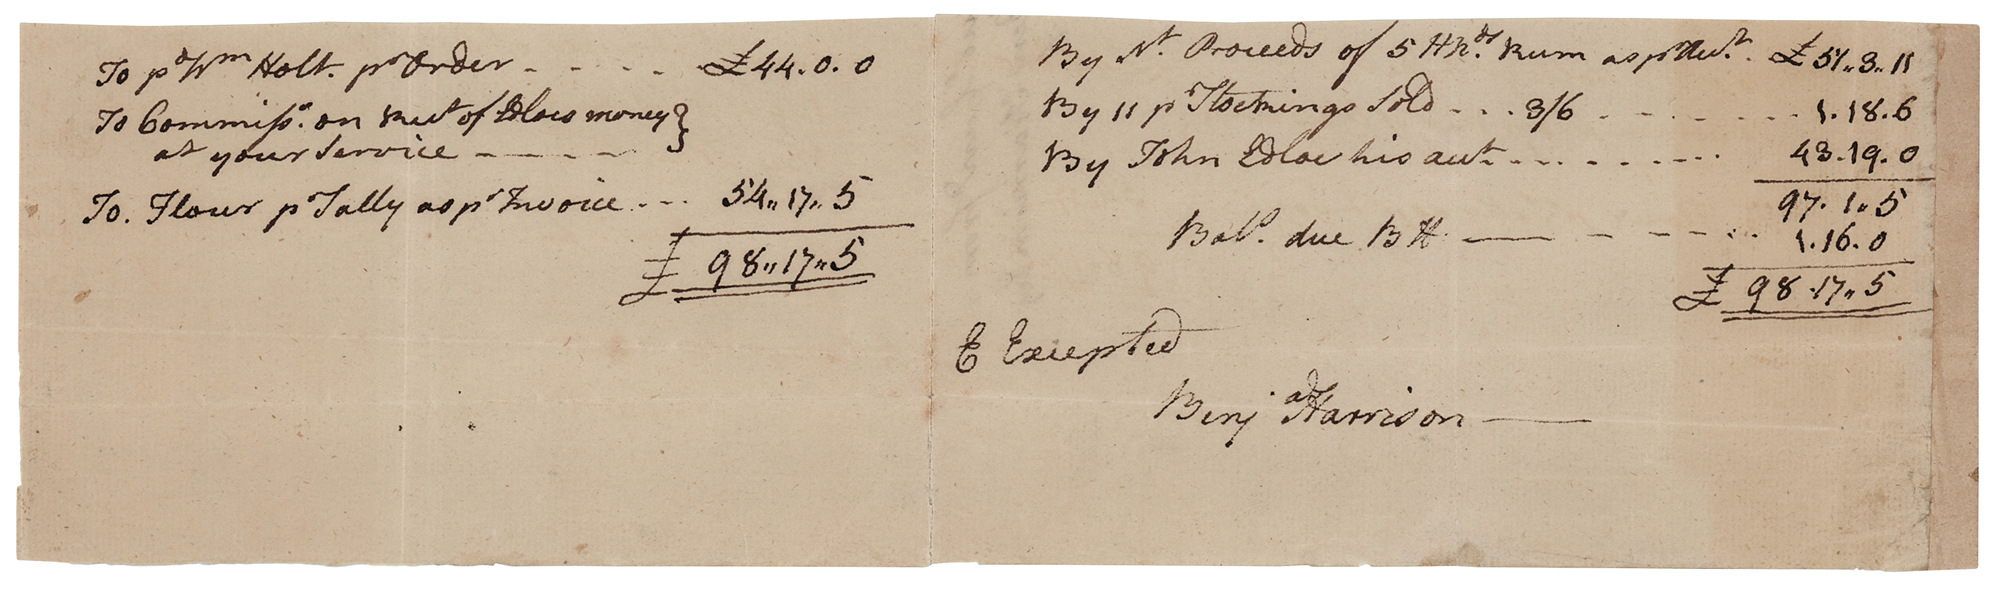 To pd Wm Holt. pr Order - - - - £44.0.0
To Commissn. on Rect of Edloes money }
at your Service - - - -
To. Flour pr Tally as pr Invoice - - - 54,,17,,5
£ 98,,17,,5
By Nt. Proceeds of 5 Hhds. Rum as pr Act. £ 51,,3,,11
By 11 pr Stockings Sold - - - 3/6 - - - - - - 1.18.6
By John Edloe his act - - - - - - - 43.19.0
97.1,,5
Bale. due BH — - - - - 1.16.0
£ 98.17,,5
E Excepted
Benja Harrison —